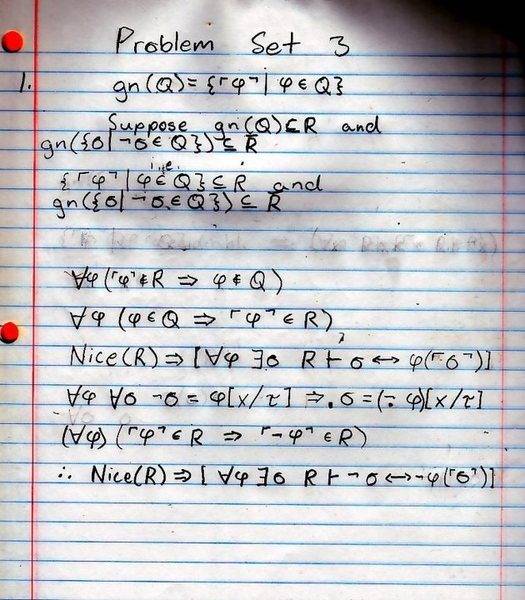 Problem Set 3
1. gn(Q) = {⌜φ⌝ | φ ∈ Q}
Suppose gn(Q) ⊆ R and
gn({σ | ¬σ ∈ Q}) ⊆ R̅
i.e.
{⌜φ⌝ | φ ∈ Q} ⊆ R and
gn({σ | ¬σ ∈ Q}) ⊆ R̅
∀φ (⌜φ⌝ ∉ R ⇒ φ ∉ Q)
∀φ (φ ∈ Q ⇒ ⌜φ⌝ ∈ R)
Nice(R) ⇒ [∀φ ∃σ R ⊢ σ ↔ φ(⌜σ⌝)]
∀φ ∀σ ¬σ = φ[x/τ] ⇒. σ = (÷ φ)[x/τ]
(∀φ) (⌜φ⌝ ∈ R ⇒ ⌜¬φ⌝ ∈ R)
∴ Nice(R) ⇒ [ ∀φ ∃σ R ⊢ ¬σ ↔ ¬φ(⌜σ⌝)]